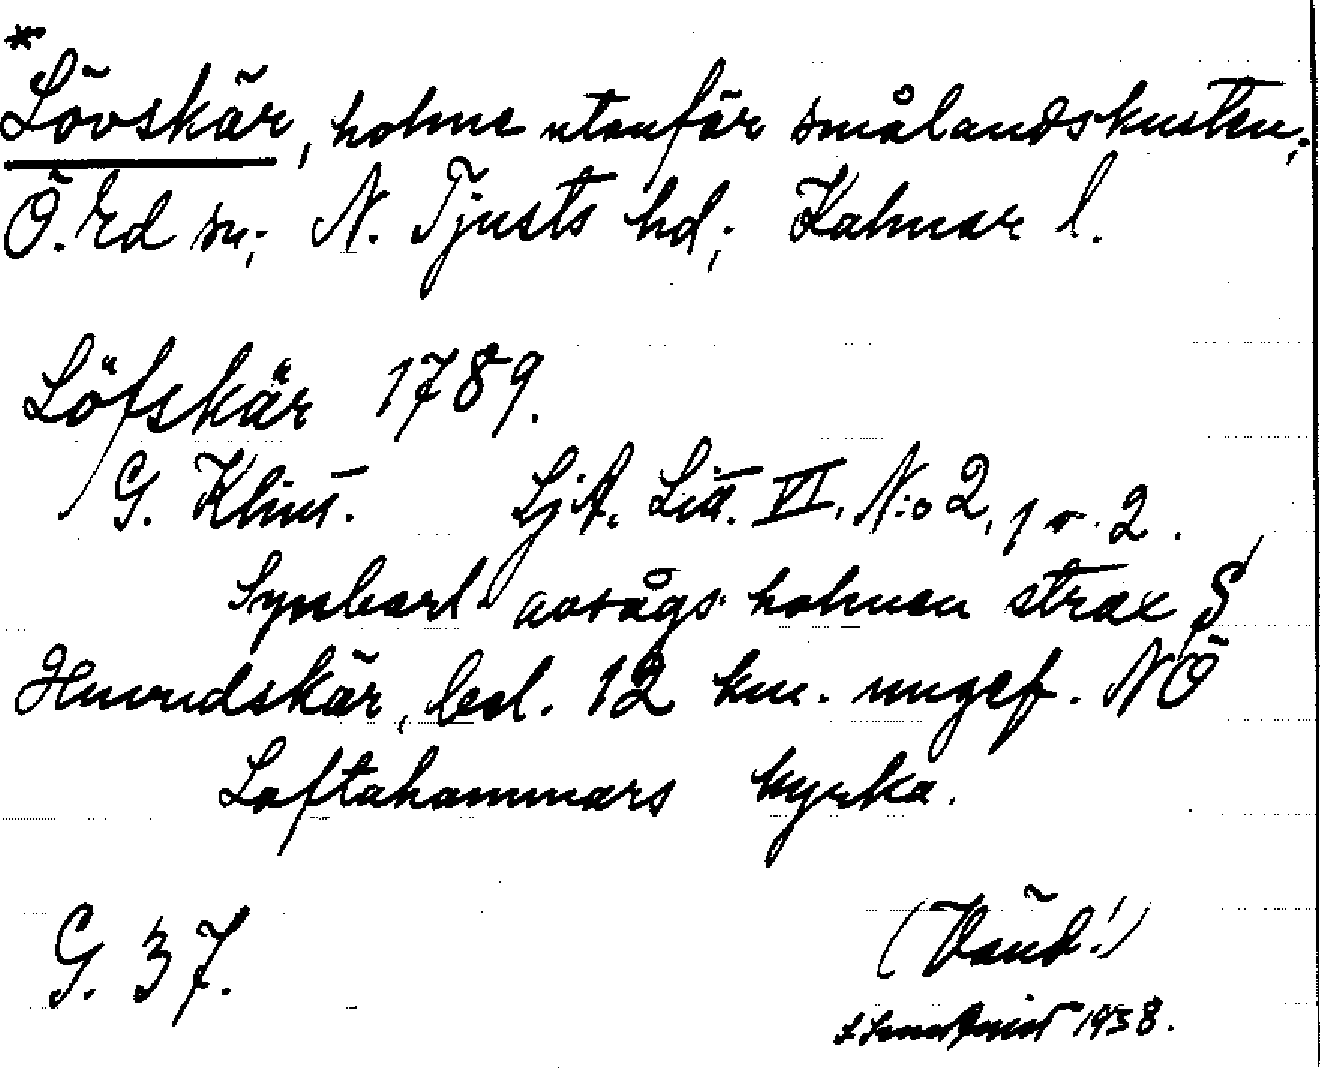 *
Lövskär, holme utanför smålandskusten;
Ö. Ed sn; N. Tjusts hd; Kalmar l.
Löfskär 1789.
G. Klint. SjA. Litt. VI. N:o 2, 1 o. 2.
Synbarl. avsågs holmen strax S
Huvudskär, bel. 12 km. ungef. NÖ
Loftahammars kyrka.
G. 37.
(Vänd!)
1938.